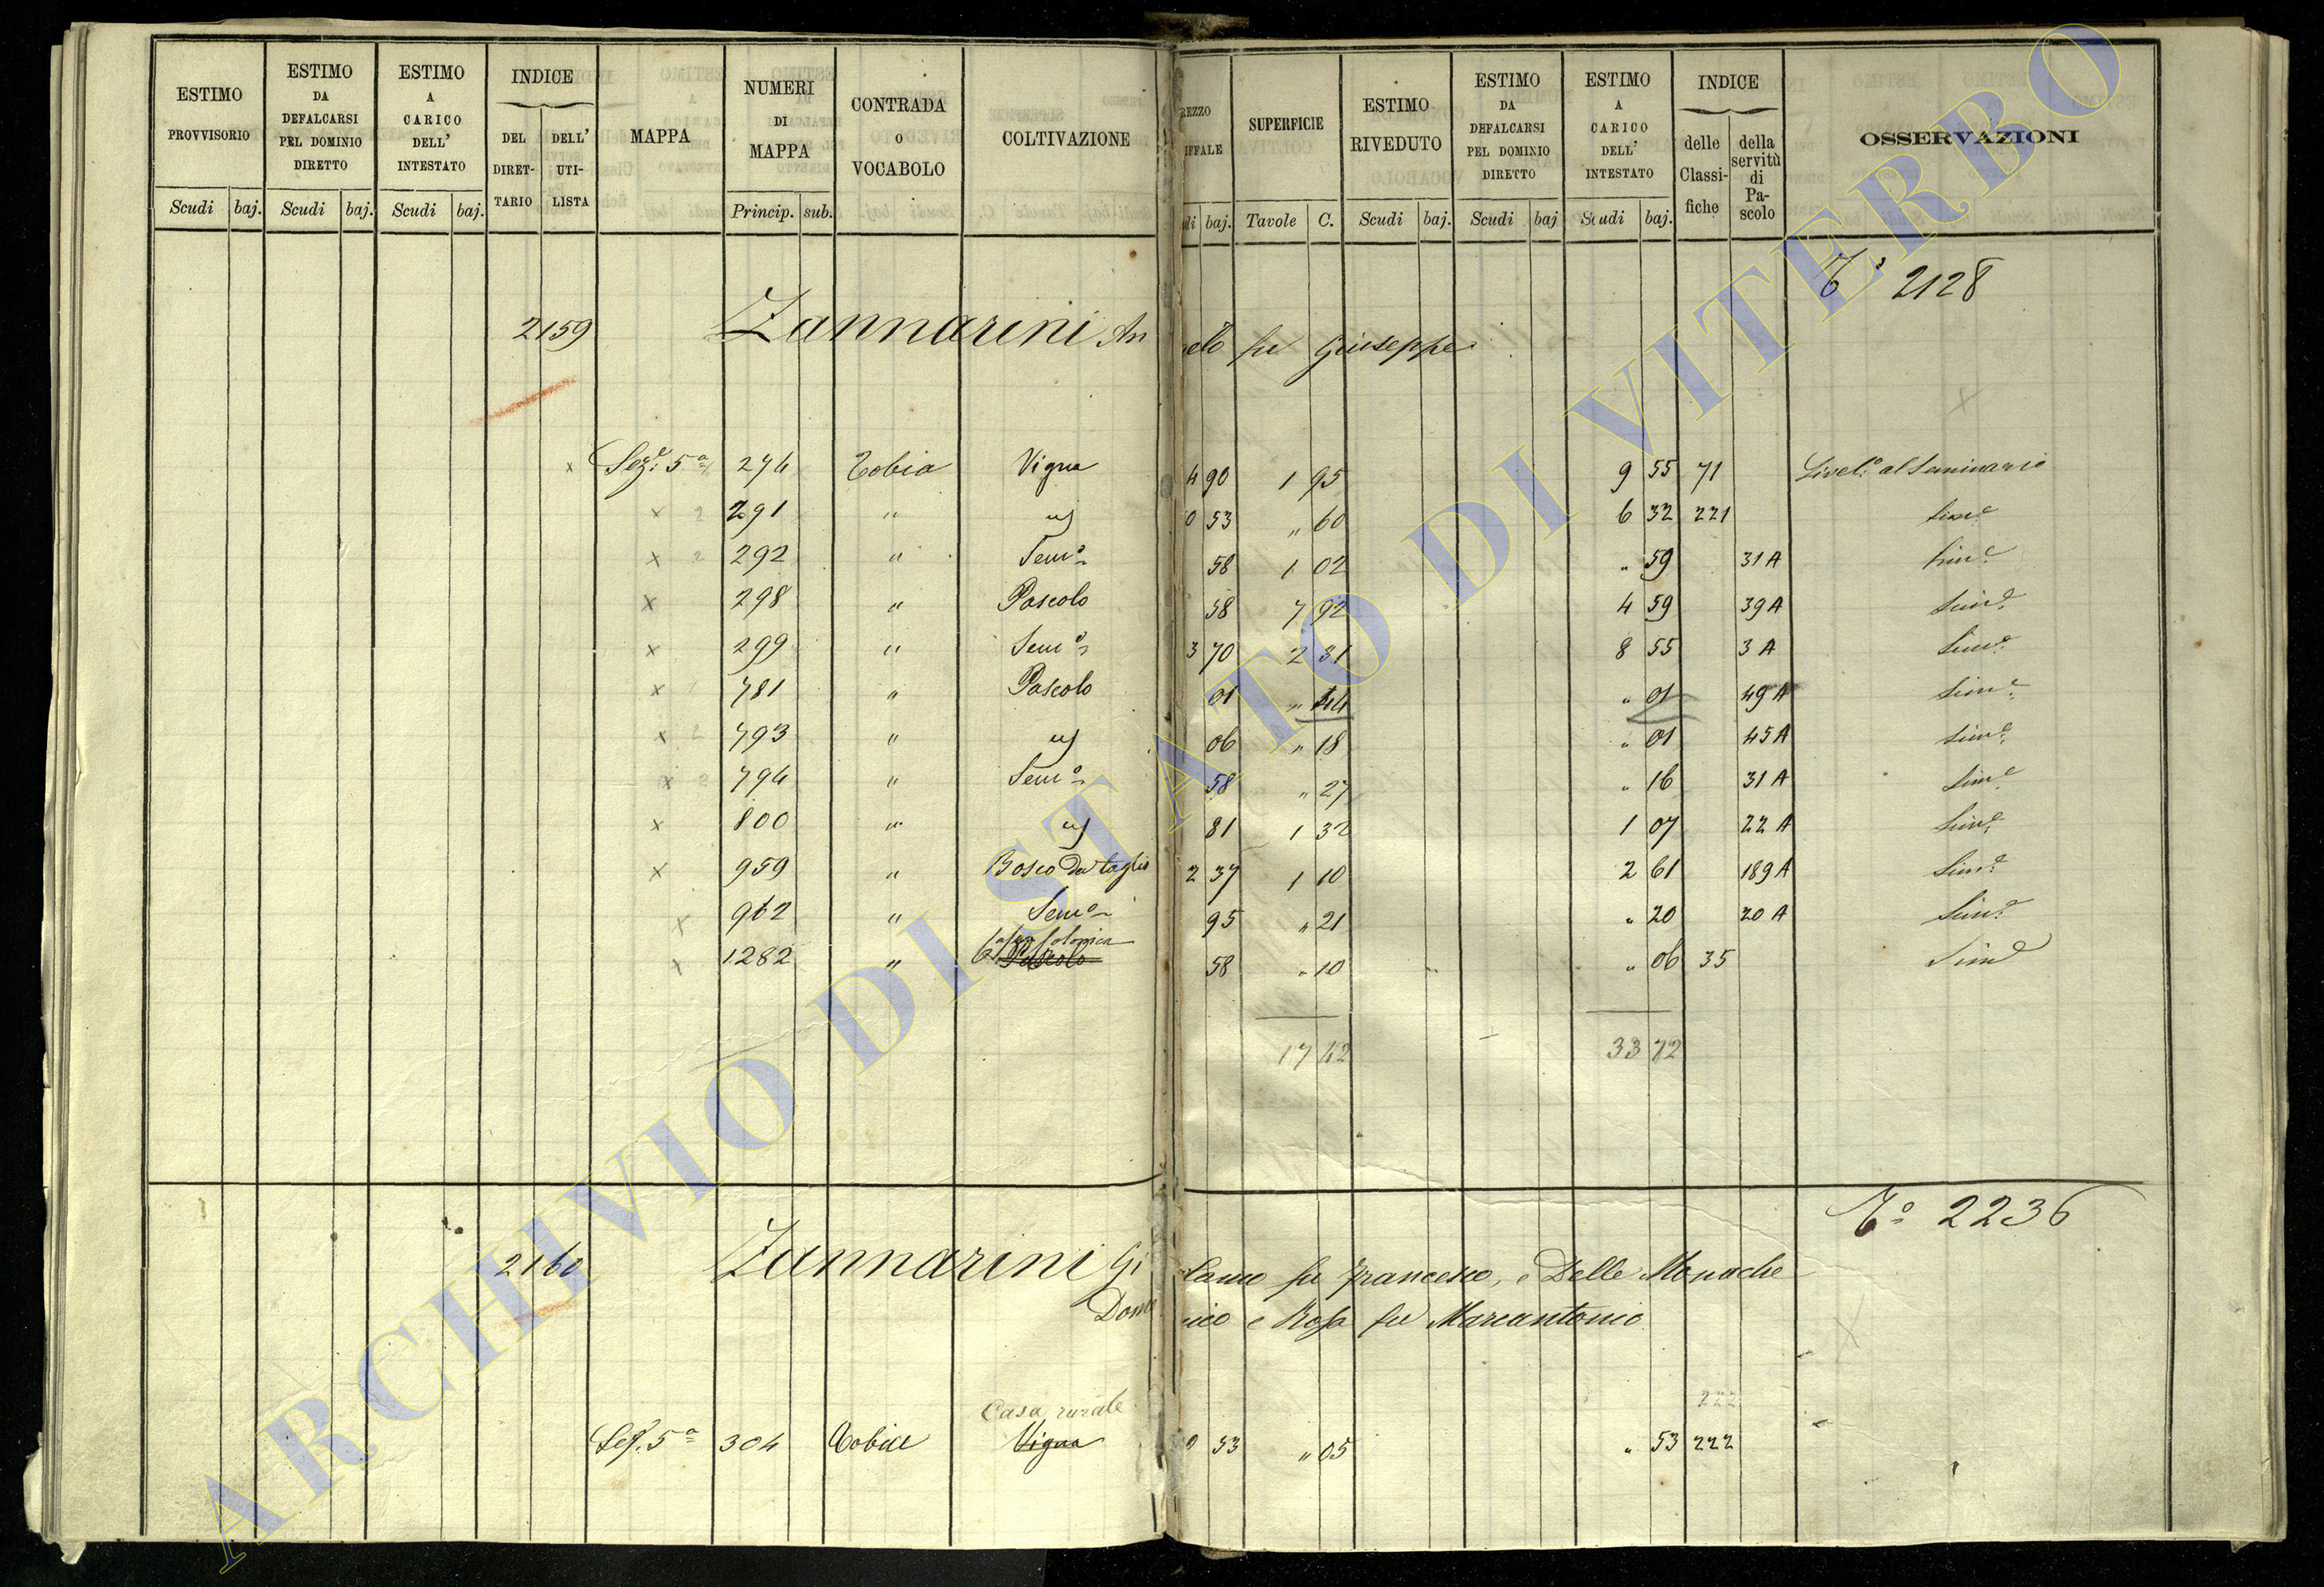 ESTIMO PROVVISORIO | ESTIMO DA DEFALCARSI PEL DOMINIO DIRETTO | ESTIMO A CARICO DELL' INTESTATO | INDICE DEL DIRETTARIO | DELL' UTILISTA | MAPPA | NUMERI DI MAPPA | CONTRADA O VOCABOLO | COLTIVAZIONE | REZZO IFFALE | SUPERFICIE | ESTIMO RIVEDUTO | ESTIMO DA DEFALCARSI PEL DOMINIO DIRETTO | ESTIMO A CARICO DELL' INTESTATO | INDICE delle Classifiche | della servitù di Pascolo | OSSERVAZIONI
Scudi baj. Scudi baj. Scudi baj. Princip. sub. di baj. Tavole C. Scudi baj. Scudi baj Scudi baj.
T.º 2128
2159 Zannarini An elo fu Giuseppe
x Sez.e 5a 274 Tobia Vigna 4 90 1 95 9 55 71 Livel.o al Seminario
x 2 291 " 0 53 " 60 6 32 221 Sim.e
x 2 292 " Sem.o 58 1 02 " 59 31 A Sim.e
x 298 " Pascolo 58 7 92 4 59 39 A Sim.e
x 299 " Sem.o 3 70 2 31 8 55 3 A Sim.e
x 781 " Pascolo 01 " 44 " 01 49 A Sim.e
x 2 793 " 06 " 18 " 01 45 A Sim.e
x 2 794 " Sem.o 58 " 27 " 16 31 A Sim.e
x 800 " 81 1 32 1 07 22 A Sim.e
x 959 " Bosco da taglio 2 37 1 10 2 61 189 A Sim.e
x 962 " Sem.o 95 " 21 " 20 20 A Sim.e
Casa Colonica
x 1282 " Pascolo 58 " 10 " 06 35 Sim.e
17 42 33 72
T.º 2236
2160 Zannarini Gi lamo fu Francesco, e Delle Monache
Dome nico e Rosa fu Marcantonio
Casa rurale 222
Sez. 5a 304 Tobia Vigna 0 53 " 05 " 53 222
ARCHIVIO DI STATO DI VITERBO